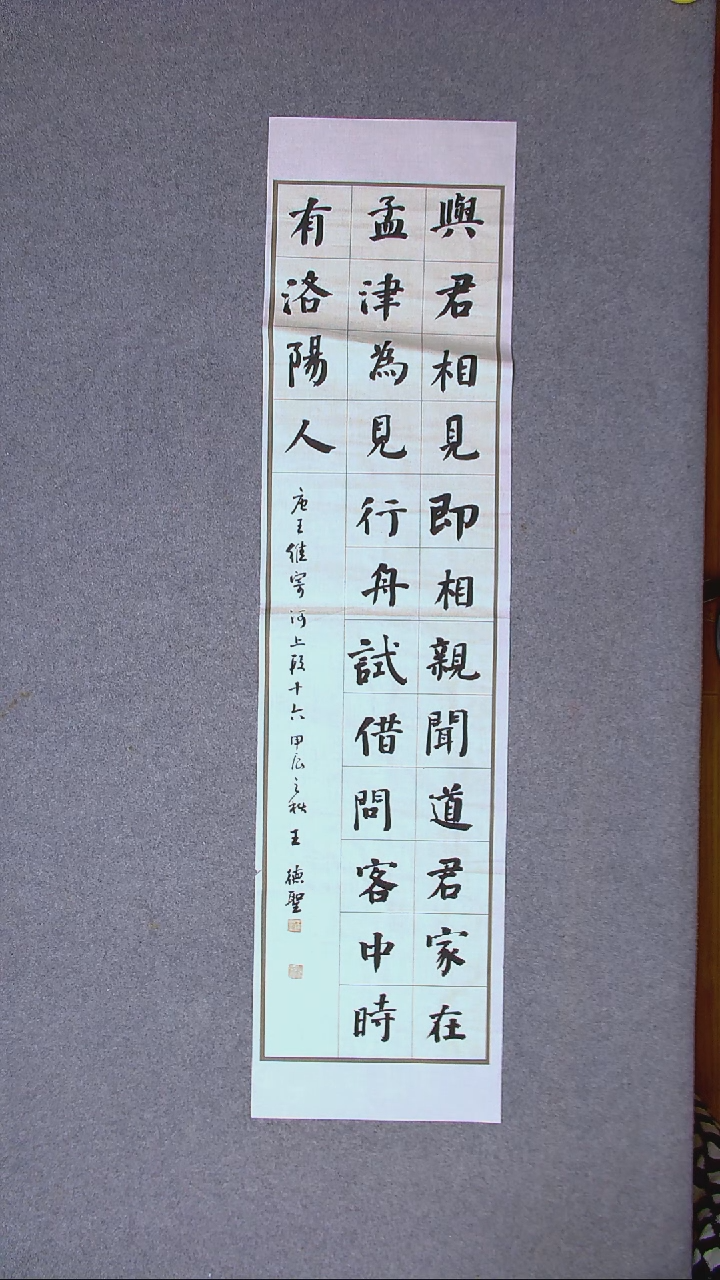 與君相見即相親聞道君家在
孟津為見行舟試借問客中時
有洛陽人
唐王維寄河上段十六甲辰之秋王德聖